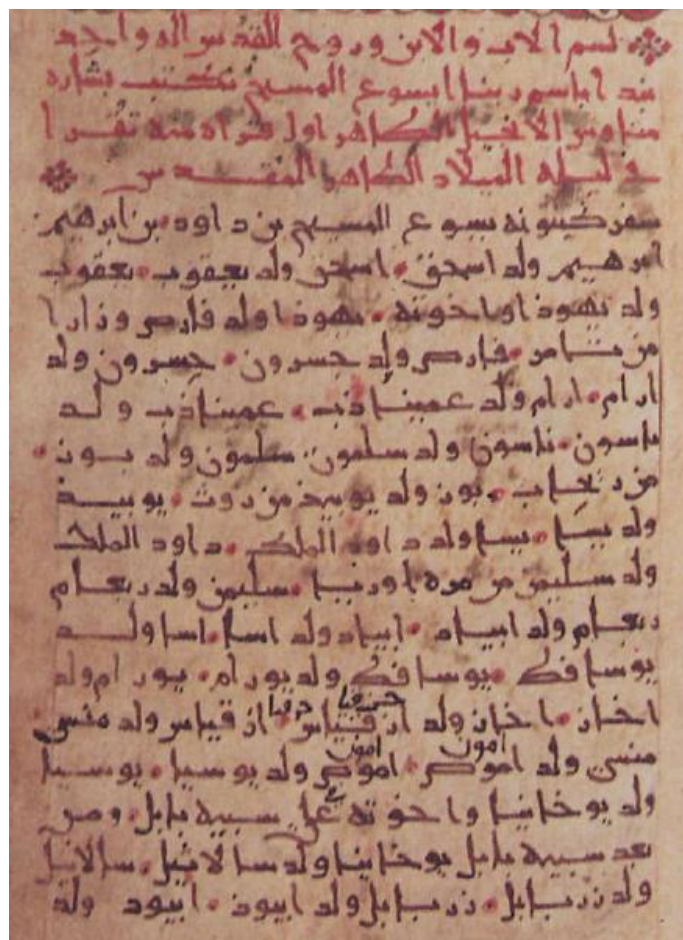 بسم الاب والابن وروح القدس اله واحد
نبدا باسم ربنا ايسوع المسيح بكتب بشاره
متاوس الانجيل الطاهر اول قراه منه تقرا
في ليله الميلاد الطاهر المقدس
سفر كينونه يسوع المسيح بن داود بن ابرهيم
ابرهيم ولد اسحق اسحق ولد يعقوب يعقوب
ولد يهوذا واخوته يهوذا ولد فارص وزارا
من تامر فارص ولد حسرون حسرون ولد
ارام ارام ولد عميناذب عميناذب ولد
ناسون ناسون ولد سلمون سلمون ولد بون
من رحاب بون ولد يوبيذ من روث يوبيذ
ولد يسا يسا ولد داود الملك داود الملك
ولد سليمن من مره اورىا سليمن ولد ربعام
ربعام ولد ابياد ابياد ولد اسا اسا ولد
يوسافط يوسافط ولد يورام يورام ولد
احاز احاز ولد ازقياس ازقياس ولد منسى
منسى ولد اموص اموص ولد يوسيا يوسيا
ولد يوخانيا واخوته على سبيه بابل ومن
بعد سبيه بابل يوخانيا ولد سالاثيل سالاثيل
ولد زربابل زربابل ولد ابيود ابيود ولد